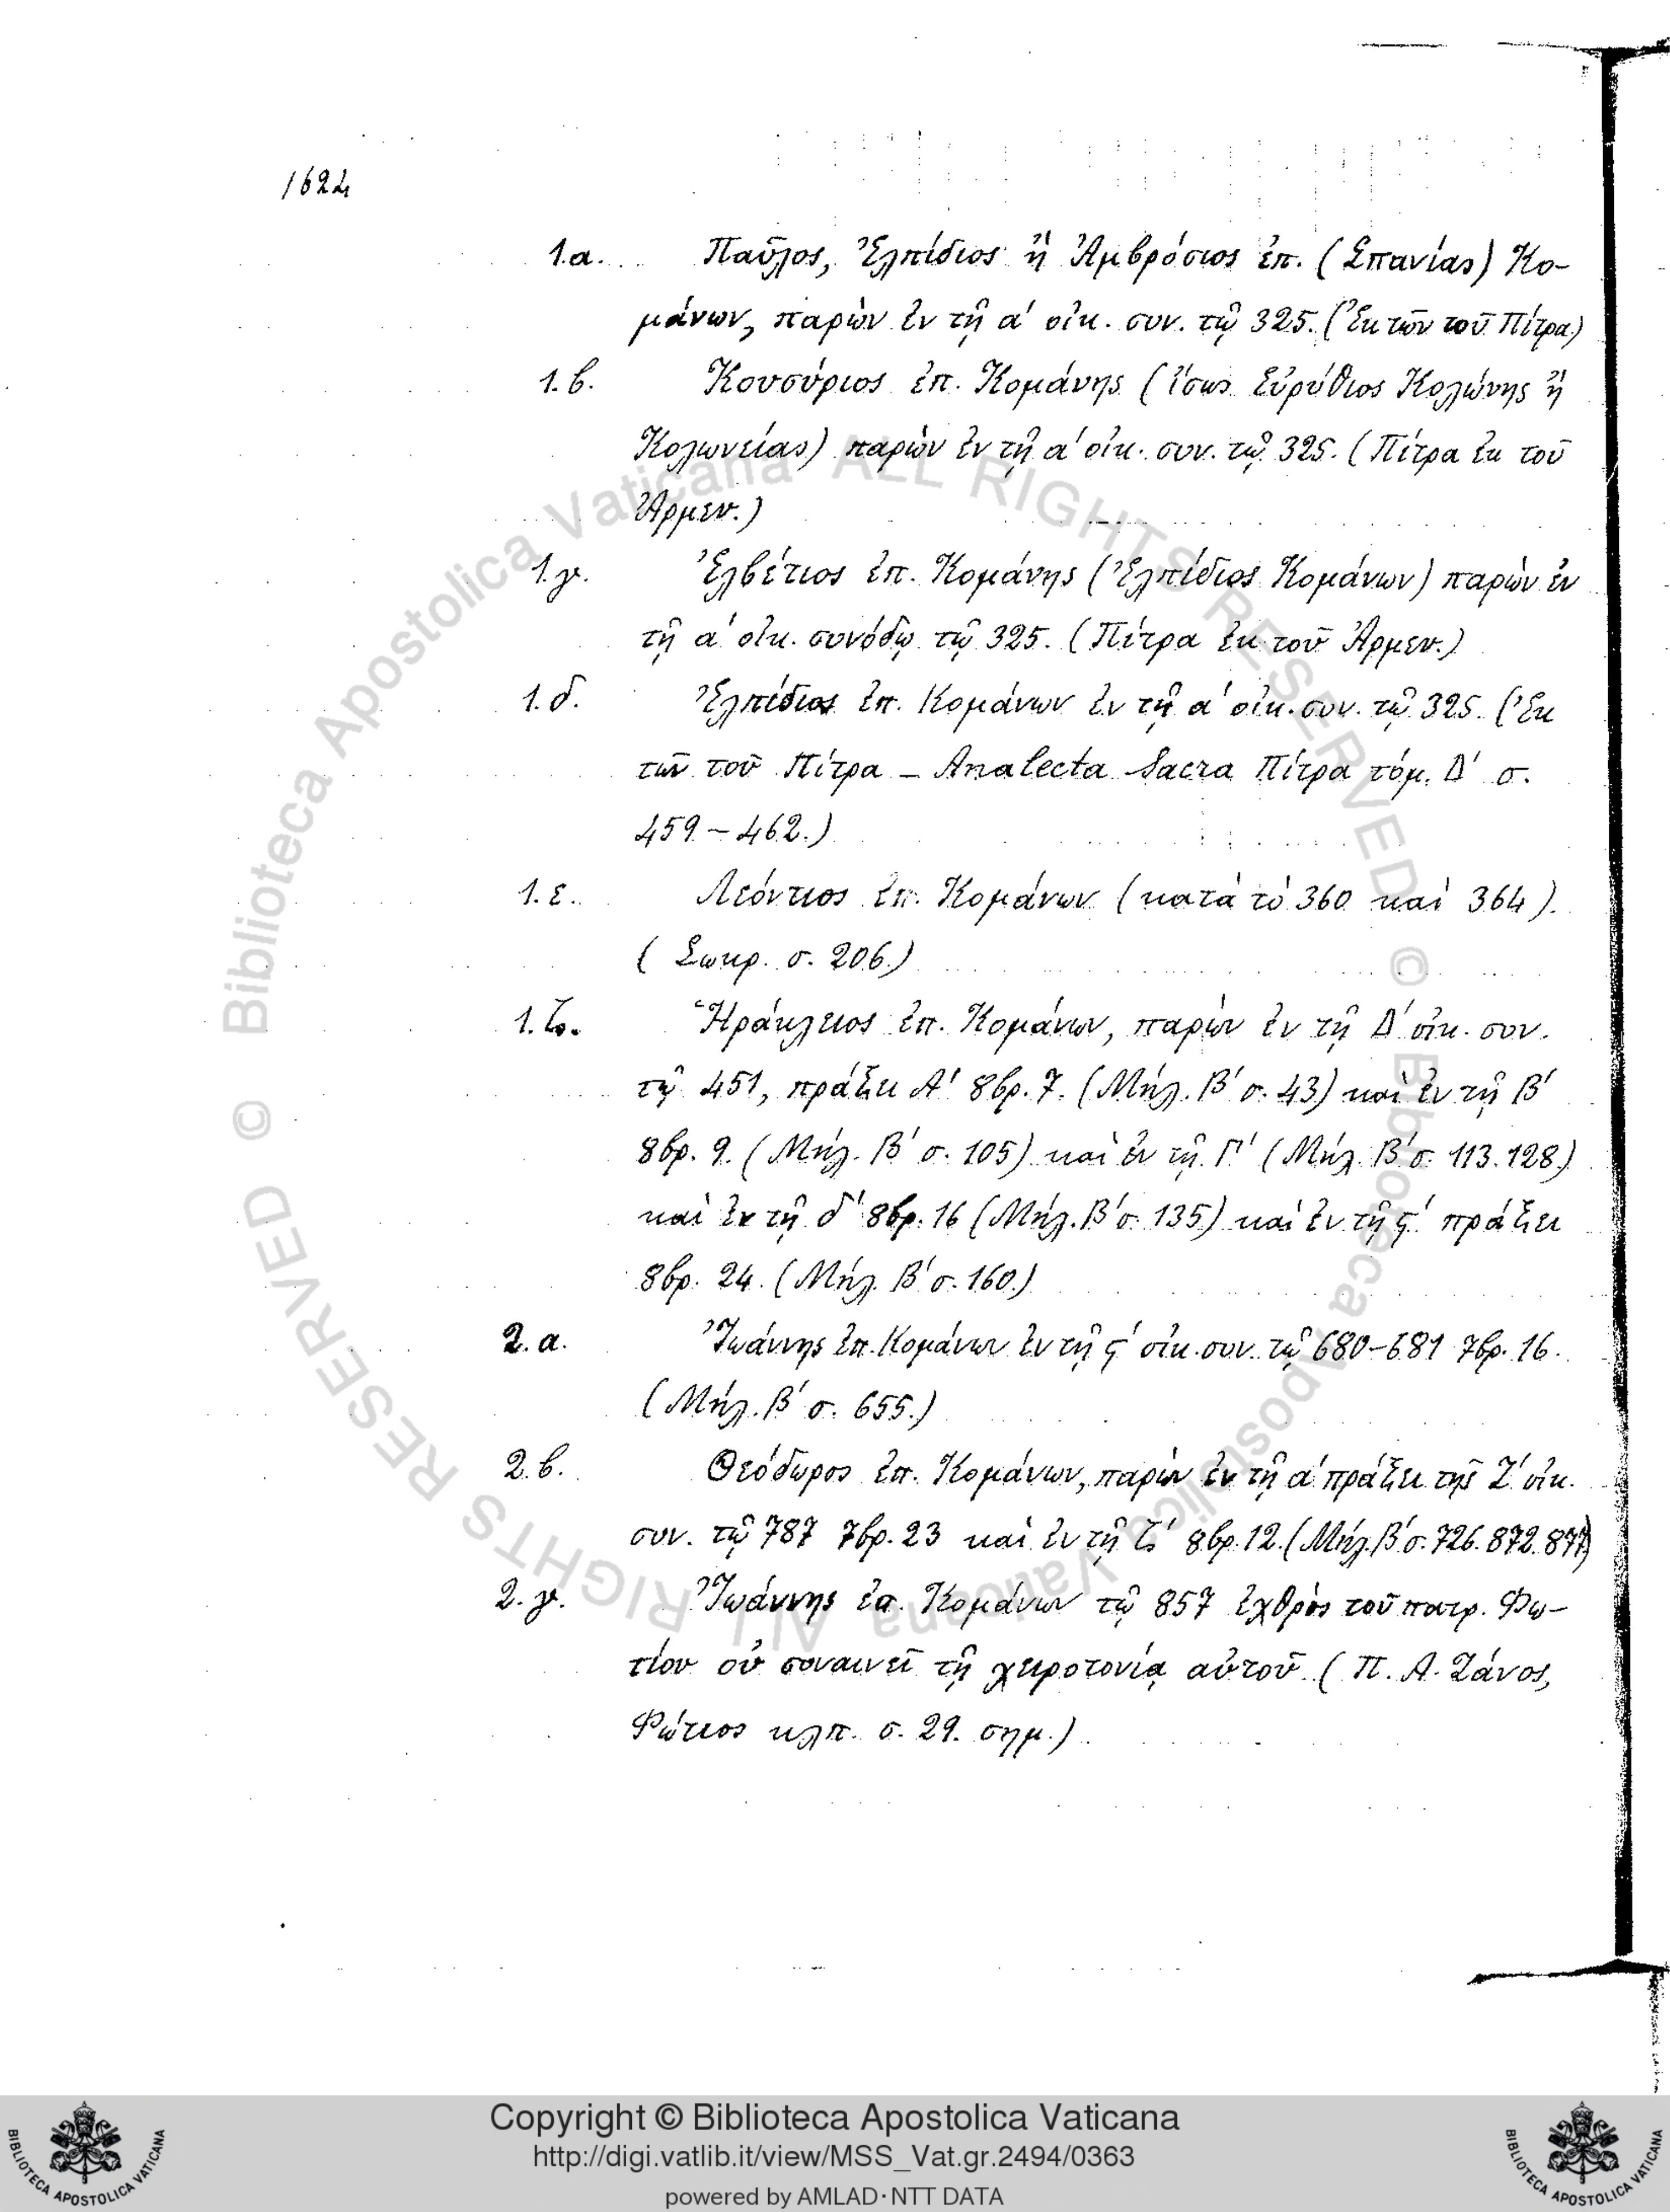 1624
1.α. Παῦλος, Ἐλπίδιος ἢ Ἀμβρόσιος ἐπ. (Σπανίας) Κο-
μάνων, παρὼν ἐν τῇ α΄ οἰκ. συν. τῷ 325. (Ἐκ τῶν τοῦ Πίτρα)
1.β. Κουσύριος ἐπ. Κομάνης (ἴσως Εὐρύθιος Κολώνης ἢ
Κολωνείας) παρὼν ἐν τῇ α΄ οἰκ. συν. τῷ 325. (Πίτρα ἐκ τοῦ
Ἀρμεν.)
1.γ. Ἐλβέτιος ἐπ. Κομάνης (Ἐλπίδιος Κομάνων) παρὼν ἐν
τῇ α΄ οἰκ. συνόδῳ τῷ 325. (Πίτρα ἐκ τοῦ Ἀρμεν.)
1.δ. Ἐλπίδιος ἐπ. Κομάνων ἐν τῇ α΄ οἰκ. συν. τῷ 325. (Ἐκ
τῶν τοῦ Πίτρα – Analecta Sacra Πίτρα τόμ. Δ΄ σ.
459–462.)
1.ε. Λεόντιος ἐπ. Κομάνων (κατὰ τὸ 360 καὶ 364).
(Σωκρ. σ. 206.)
1.ζ. Ἡράκλειος ἐπ. Κομάνων, παρὼν ἐν τῇ Δ΄ οἰκ. συν.
τῷ 451, πράξει Α΄ 8βρ. 7. (Μήλ. Β΄ σ. 43) καὶ ἐν τῇ Β΄
8βρ. 9. (Μήλ. Β΄ σ. 105) καὶ ἐν τῇ Γ΄ (Μήλ. Β΄ σ. 113.128)
καὶ ἐν τῇ δ΄ 8βρ. 16 (Μήλ. Β΄ σ. 135) καὶ ἐν τῇ ϛ΄ πράξει
8βρ. 24. (Μήλ. Β΄ σ. 160.)
2.α. Ἰωάννης ἐπ. Κομάνων ἐν τῇ ϛ΄ οἰκ. συν. τῷ 680–681 7βρ. 16.
(Μήλ. Β΄ σ. 655.)
2.β. Θεόδωρος ἐπ. Κομάνων, παρὼν ἐν τῇ α΄ πράξει τῆς Ζ΄ οἰκ.
συν. τῷ 787 7βρ. 23 καὶ ἐν τῇ ζ΄ 8βρ. 12. (Μήλ. Β΄ σ. 726. 872. 877)
2.γ. Ἰωάννης ἐπ. Κομάνων τῷ 857 ἐχθρὸς τοῦ πατρ. Φω-
τίου οὐ συναινεῖ τῇ χειροτονίᾳ αὐτοῦ. (Π. Α. Ζάνος,
Φώτιος κλπ. σ. 29. σημ.)
© Biblioteca Apostolica Vaticana ALL RIGHTS RESERVED © Biblioteca Apostolica Vaticana ALL RIGHTS RESERVED
Copyright © Biblioteca Apostolica Vaticana
http://digi.vatlib.it/view/MSS_Vat.gr.2494/0363
powered by AMLAD·NTT DATA
BIBLIOTECA APOSTOLICA VATICANA
BIBLIOTECA APOSTOLICA VATICANA